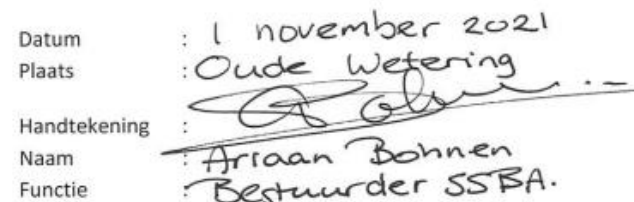 Datum : 1 november 2021
Plaats : Oude Wetering
Handtekening :
Naam : Arjaan Bohnen
Functie : Bestuurder SSBA.